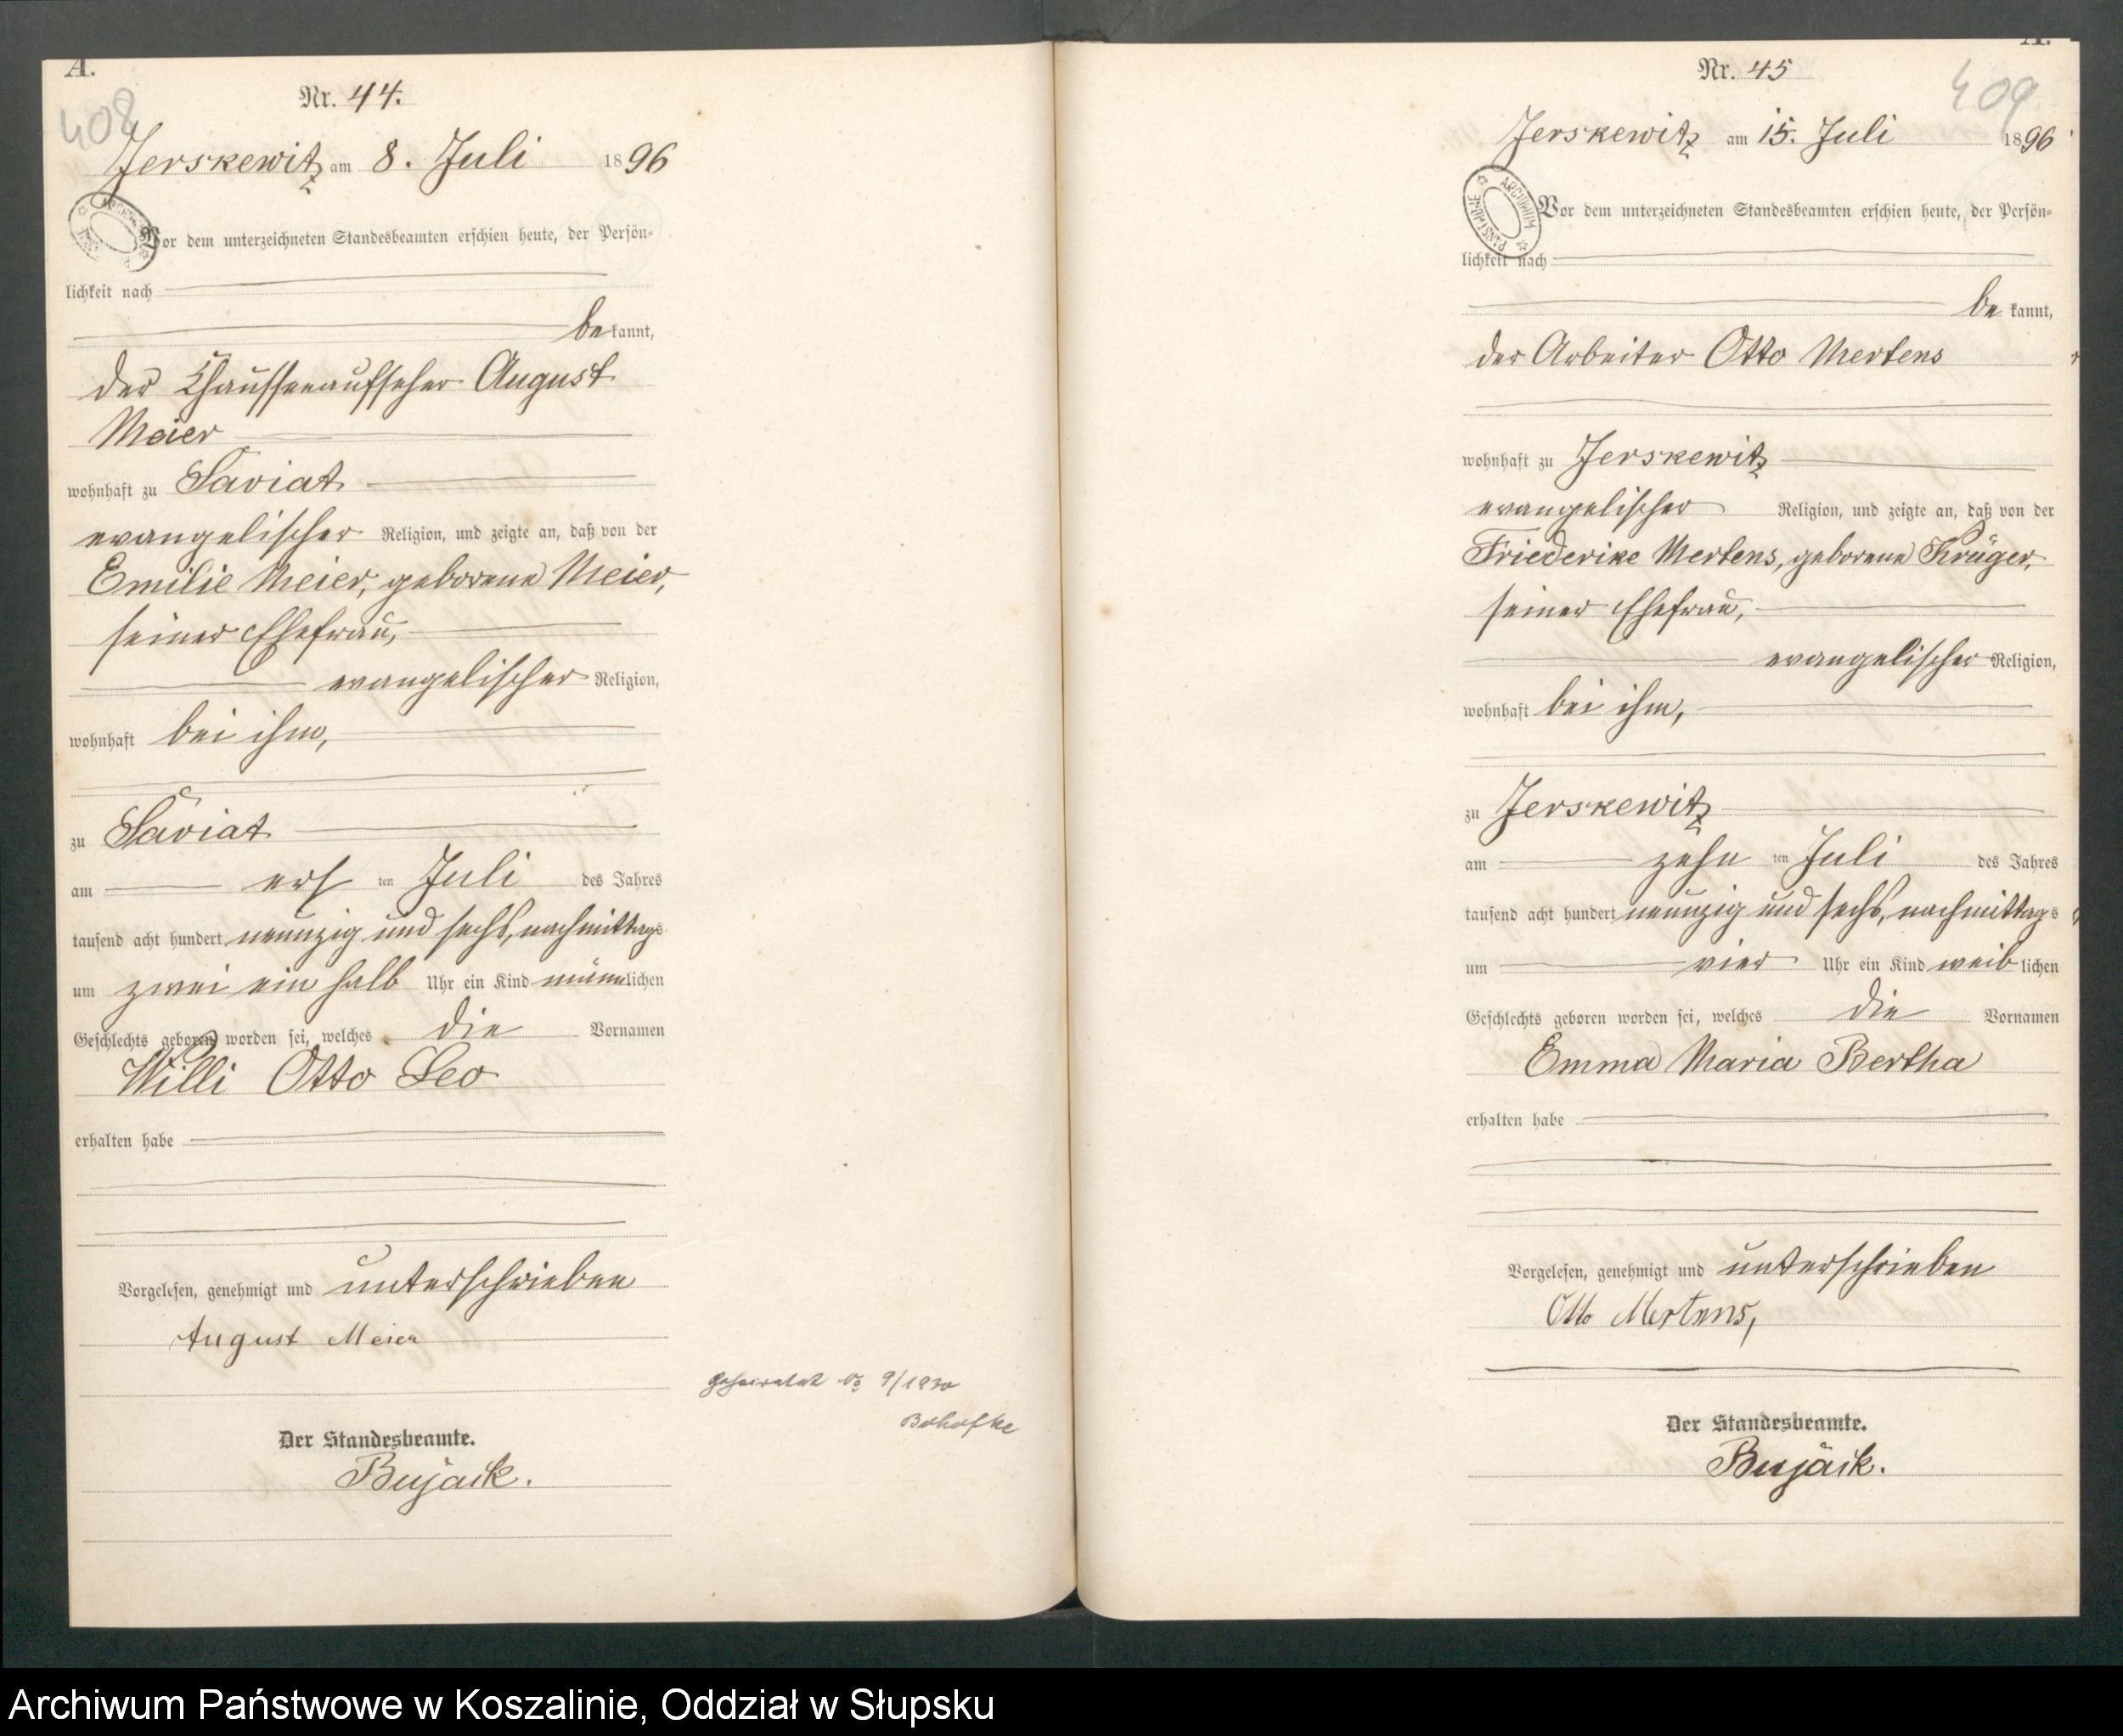 A.
408
Nr. 44.
Jerskewitz am 8. Juli 1896
Vor dem unterzeichneten Standesbeamten erschien heute, der Persön-
lichkeit nach
be kannt,
der Chausseeaufseher August
Meier
wohnhaft zu Saviat
evangelischer Religion, und zeigte an, daß von der
Emilie Meier, geborene Meier,
seiner Ehefrau,
evangelischer Religion,
wohnhaft bei ihm,
zu Saviat
am ersten Juli des Jahres
tausend acht hundert neunzig und sechs, nachmittags
um zwei ein halb Uhr ein Kind männlichen
Geschlechts geboren worden sei, welches die Vornamen
Willi Otto Leo
erhalten habe
Vorgelesen, genehmigt und unterschrieben
August Meier
geheiratet No 9/1930
Der Standesbeamte.
Bujack.
A.
409
Nr. 45
Jerskewitz am 15. Juli 1896
ARCHIWUM PAŃSTWOWE
Vor dem unterzeichneten Standesbeamten erschien heute, der Persön-
lichkeit nach
be kannt,
der Arbeiter Otto Mertens
wohnhaft zu Jerskewitz
evangelischer Religion, und zeigte an, daß von der
Friederike Mertens, geborene Krüger,
seiner Ehefrau,
evangelischer Religion,
wohnhaft bei ihm,
zu Jerskewitz
am zehn ten Juli des Jahres
tausend acht hundert neunzig und sechs, nachmittags
um vier Uhr ein Kind weiblichen
Geschlechts geboren worden sei, welches die Vornamen
Emma Maria Bertha
erhalten habe
Vorgelesen, genehmigt und unterschrieben
Otto Mertens,
Der Standesbeamte.
Bujack.
Archiwum Państwowe w Koszalinie, Oddział w Słupsku